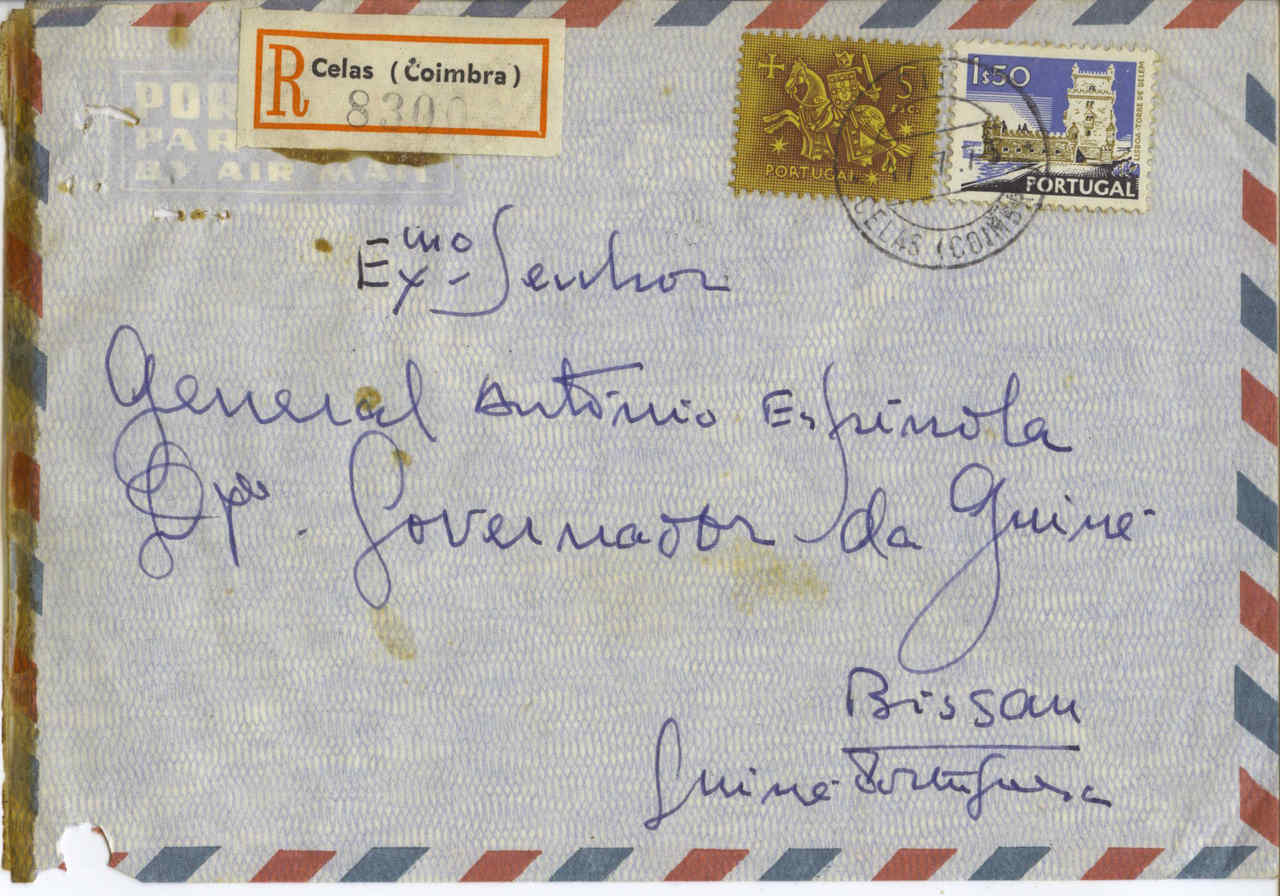 R Celas (Coimbra)
8300
POR
PAR
BY AIR MAIL
5
PORTUGAL
1$50
LISBOA-TORRE DE BELEM
PORTUGAL
CELAS (COIMB
Exmo Senhor
General António Espínola
Governador da Guiné
Bissau
Guiné Portuguesa